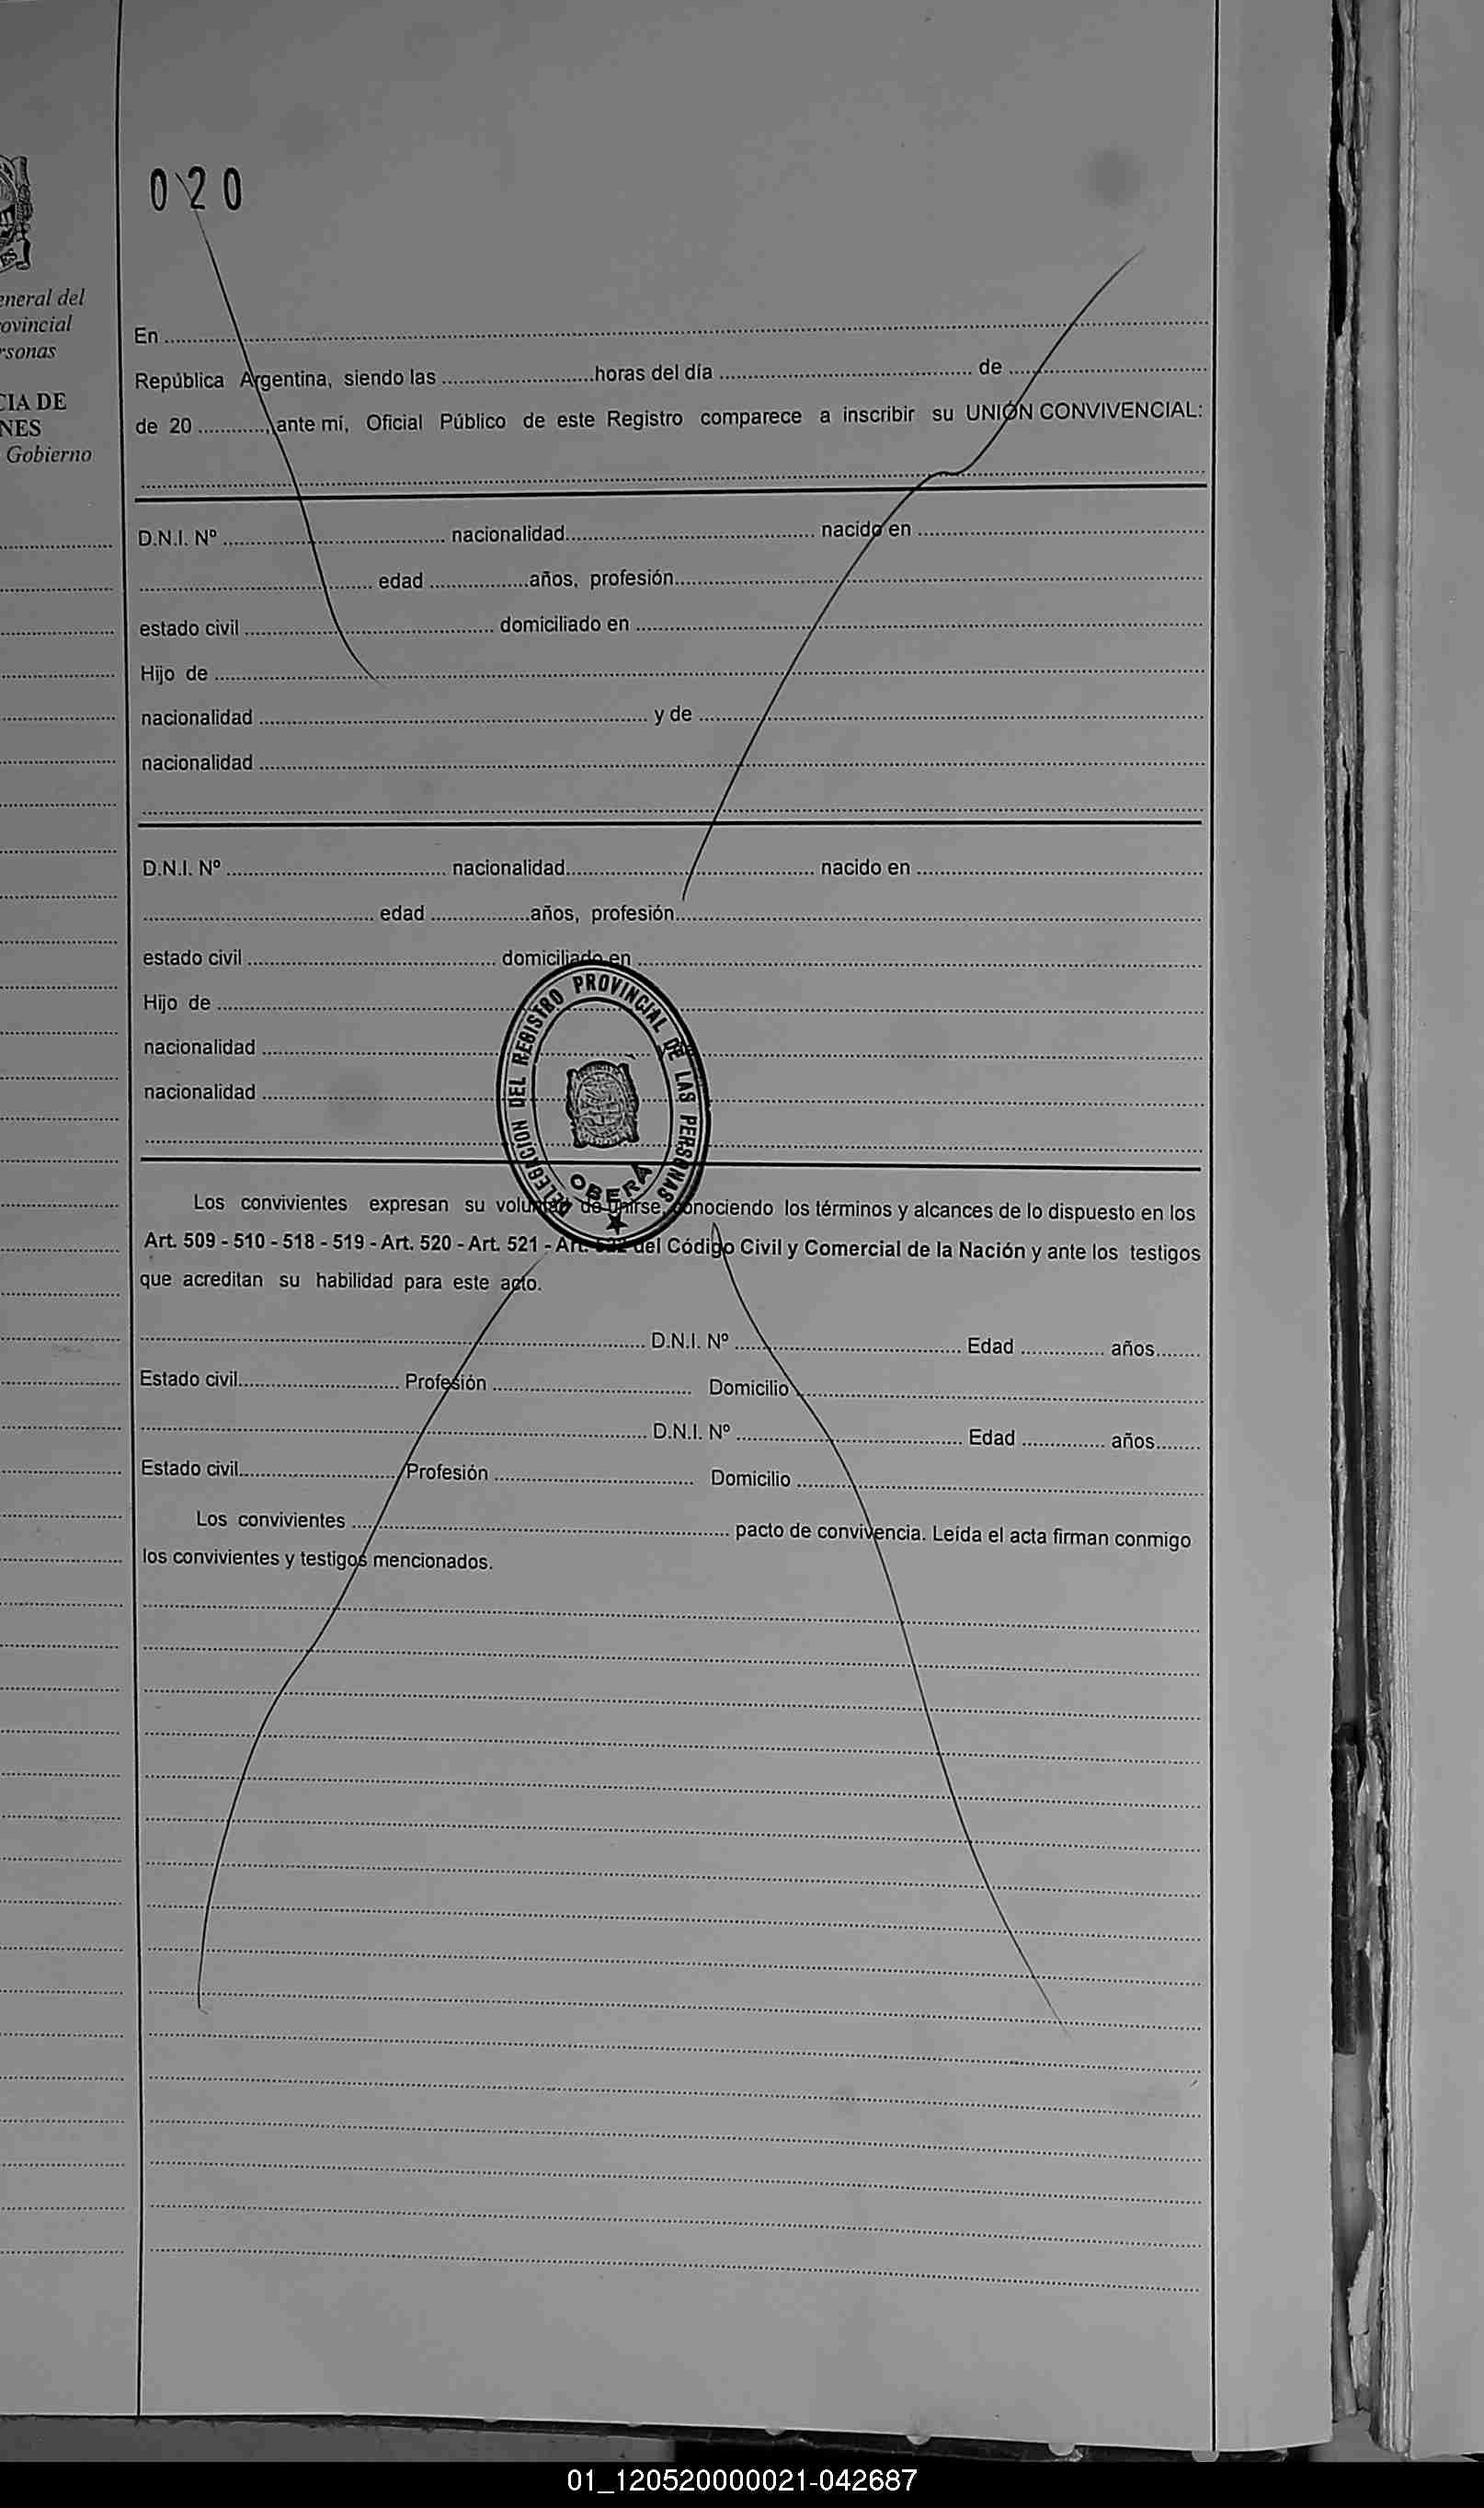 020
eneral del
ovincial
rsonas
CIA DE
NES
Gobierno
En
República Argentina, siendo las horas del día de
de 20 ante mí, Oficial Público de este Registro comparece a inscribir su UNIÓN CONVIVENCIAL:
D.N.I. Nº nacionalidad nacido en
edad años, profesión
estado civil domiciliado en
Hijo de
nacionalidad y de
nacionalidad
D.N.I. Nº nacionalidad nacido en
edad años, profesión
estado civil domiciliado en
Hijo de
nacionalidad
nacionalidad
DELEGACION DEL REGISTRO PROVINCIAL DE LAS PERSONAS
OBERA
Los convivientes expresan su voluntad de unirse, conociendo los términos y alcances de lo dispuesto en los
Art. 509 - 510 - 518 - 519 - Art. 520 - Art. 521 - Art. 522 del Código Civil y Comercial de la Nación y ante los testigos
que acreditan su habilidad para este acto.
D.N.I. Nº Edad años
Estado civil Profesión Domicilio
D.N.I. Nº Edad años
Estado civil Profesión Domicilio
Los convivientes pacto de convivencia. Leída el acta firman conmigo
los convivientes y testigos mencionados.
01_120520000021-042687